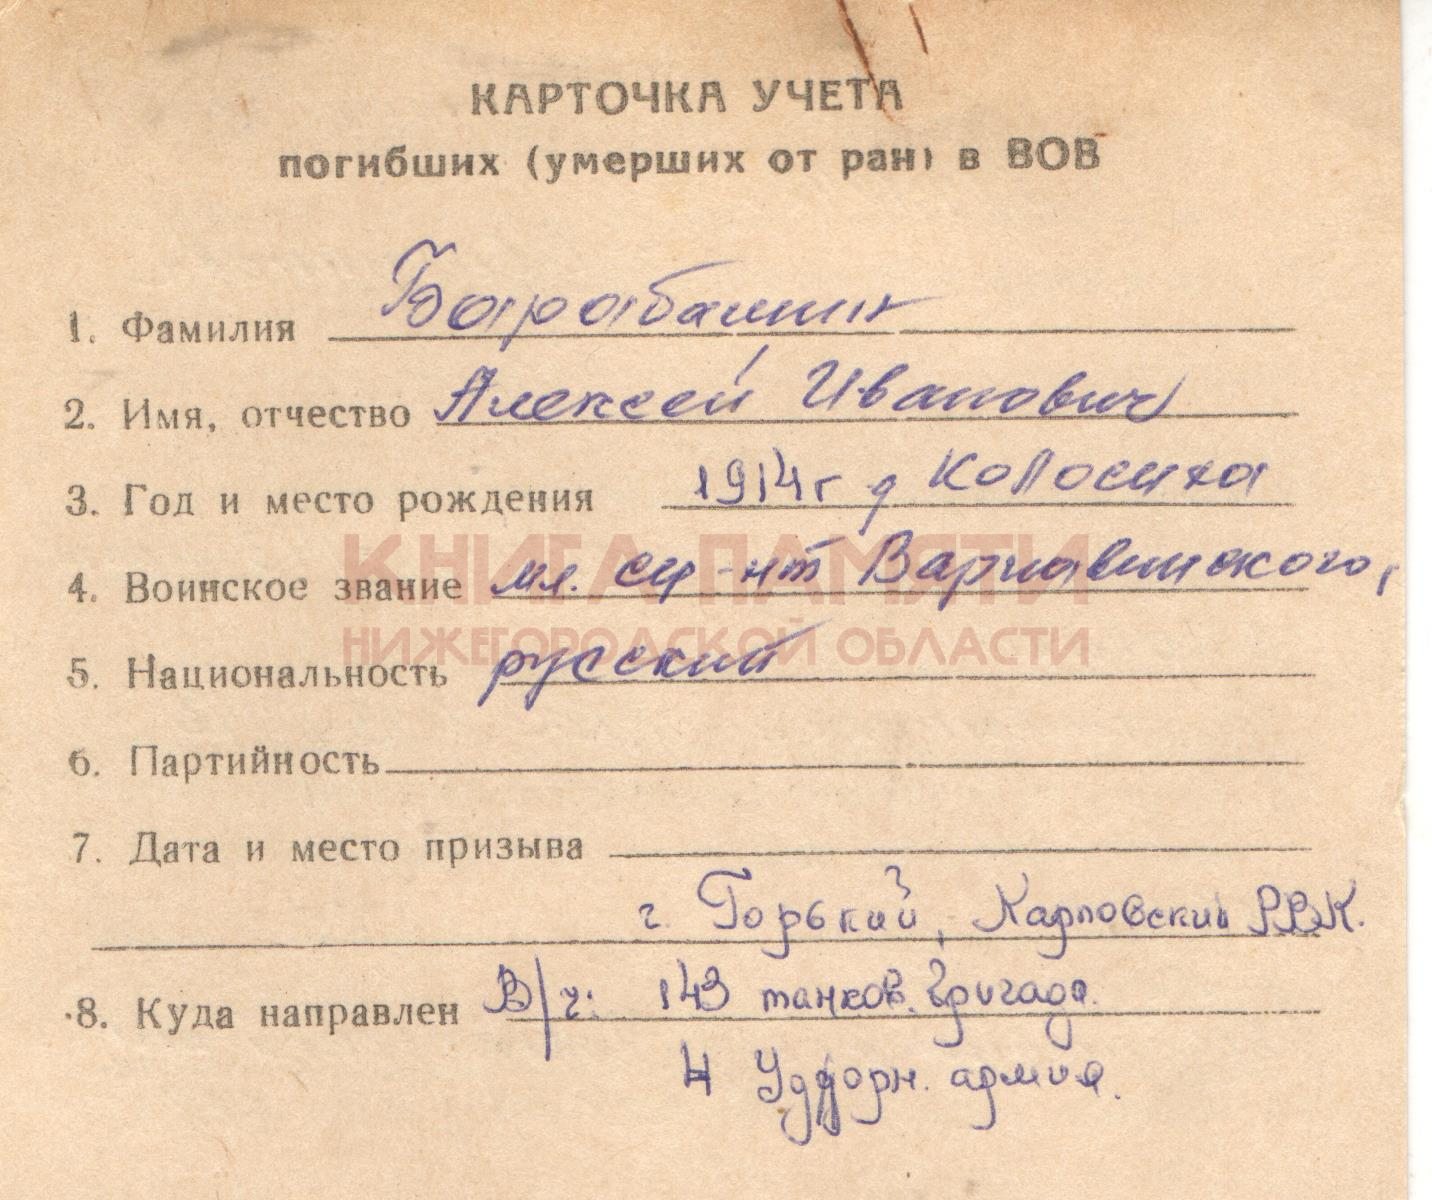 КАРТОЧКА УЧЕТА
погибших (умерших от ран) в ВОВ
1. Фамилия Барабашин
2. Имя, отчество Алексей Иванович
3. Год и место рождения 1914 г д Колосиха
4. Воинское звание мл. с-нт Варнавинского,
КНИГА ПАМЯТИ
НИЖЕГОРОДСКОЙ ОБЛАСТИ
5. Национальность русский
6. Партийность
7. Дата и место призыва
г. Горький, Карповский РВК.
8. Куда направлен В/ч: 143 танков. бригада.
4 Ударн. армия.